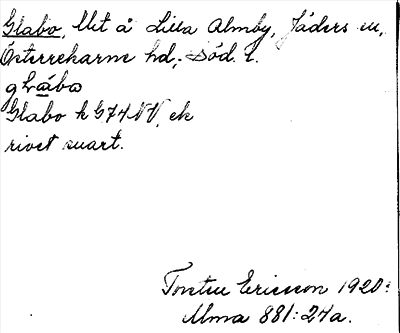 Glabo, llit å Lilla Almby, Jäders sn,
Österrekarne hd, Söd. l.
glába
Glabo k G74 NV, ek
rivet snart.
Torsten Ericsson 1920:
Ulma 881:24a.